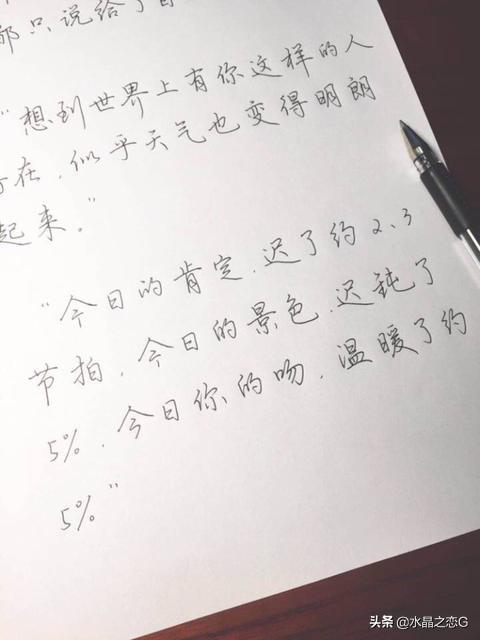 那只说给了
"想到世界上有你这样的人
存在,似乎天气也变得明朗
起来。"
"今日的肯定,迟了约2、3
节拍,今日的景色,迟钝了
5%,今日你的吻,温暖了约
5%"
头条 @水晶之恋G